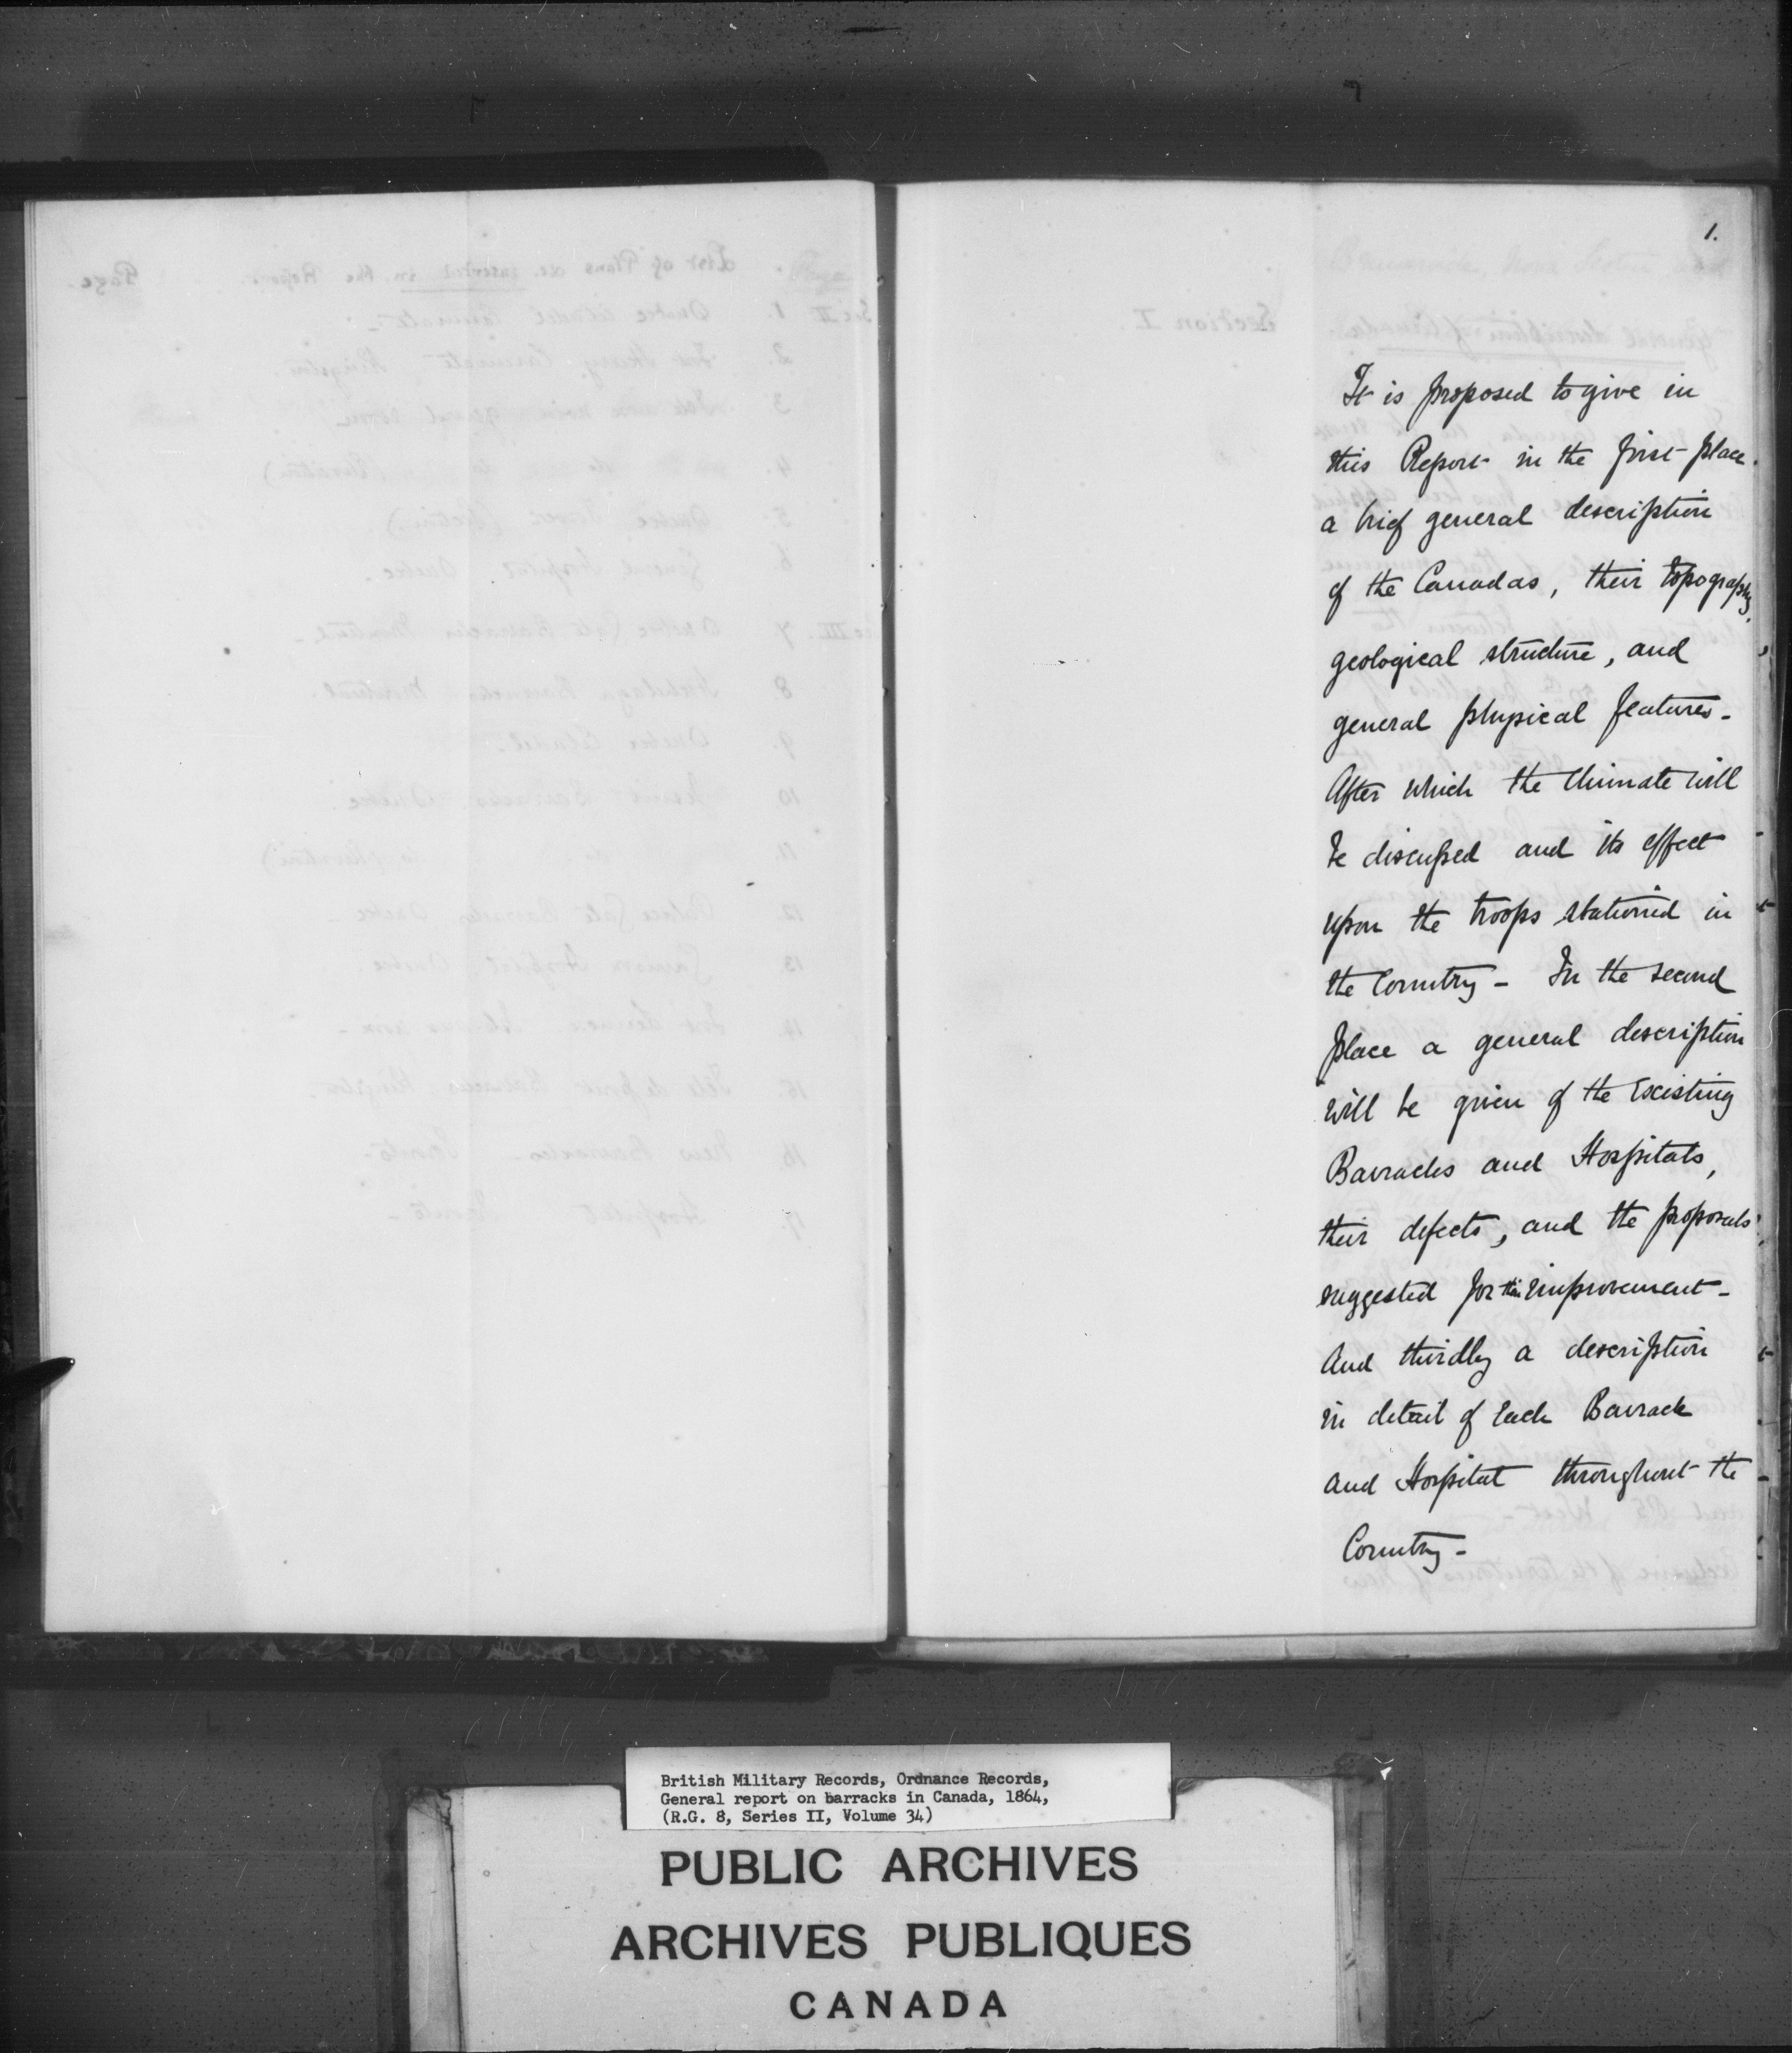 1.
It is proposed to give in
this Report in the first place
a brief general description
of the Canadas, their topography,
geological structure, and
general physical features -
After which the Climate will
be discussed and its effect
upon the troops stationed in
the Country - In the second
place a general description
will be given of the Existing
Barracks and Hospitals,
their defects, and the proposals
suggested for their improvement -
And thirdly a description
in detail of each Barrack
and Hospital throughout the
Country -
British Military Records, Ordnance Records,
General report on barracks in Canada, 1864,
(R.G. 8, Series II, Volume 34)
PUBLIC ARCHIVES
ARCHIVES PUBLIQUES
CANADA